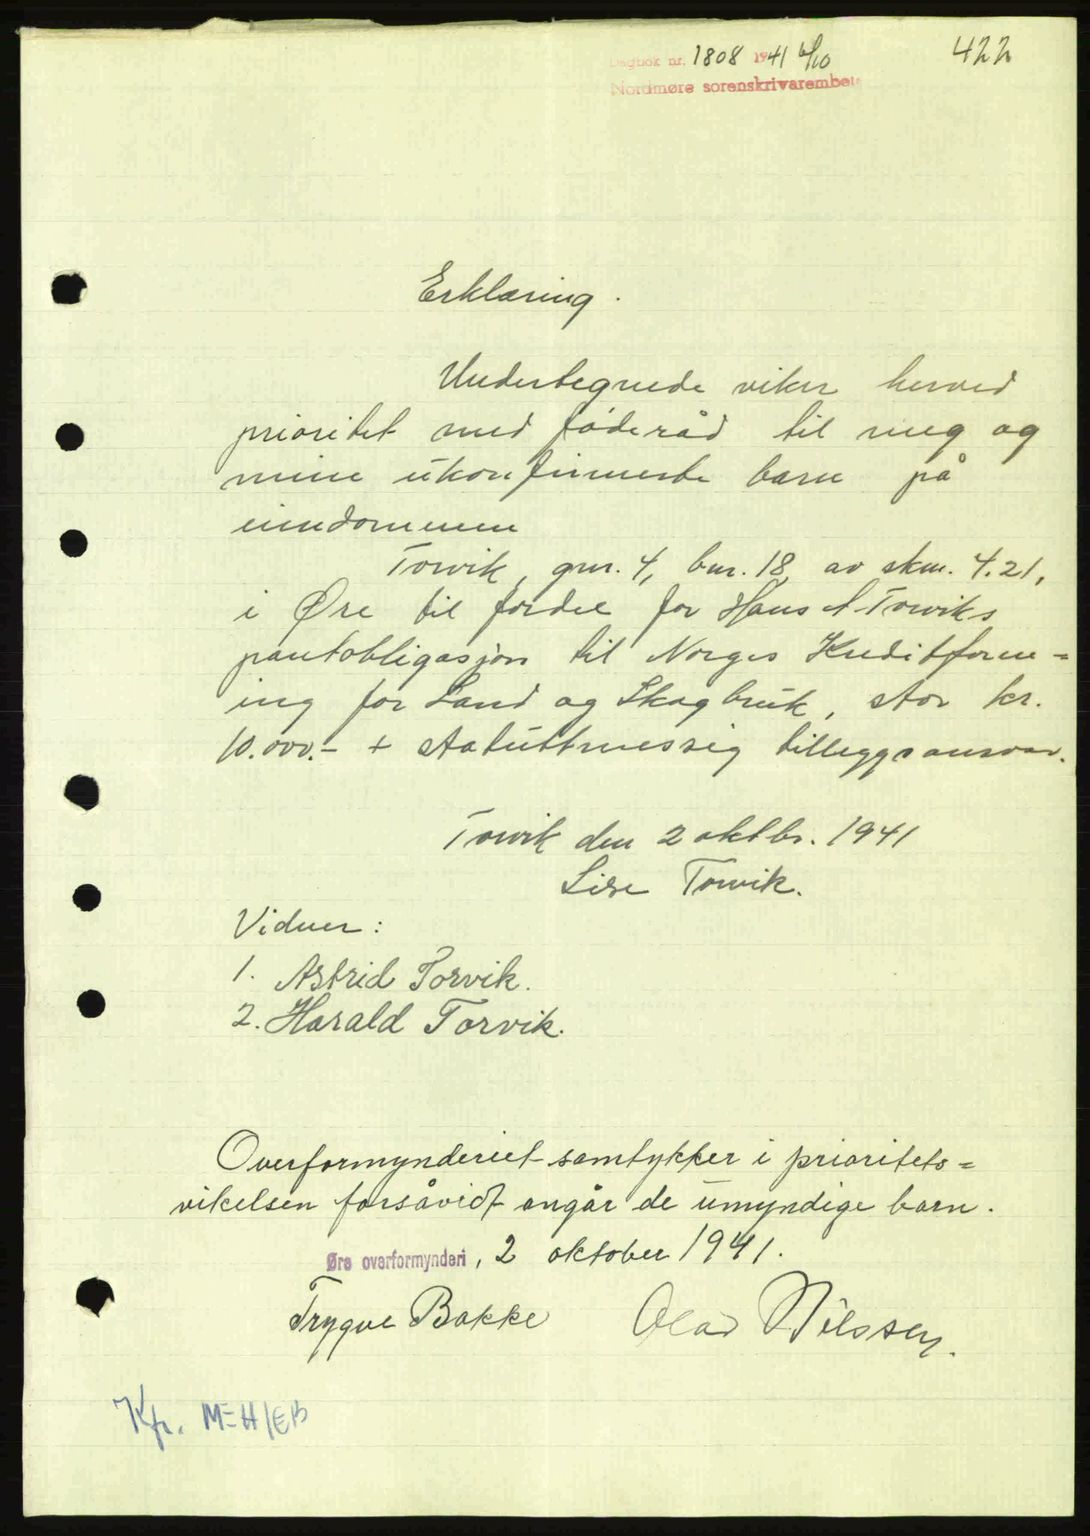 422
Dagbok nr. 1808 1941 6/10
Nordmøre sorenskrivarembete
Erklæring.
Undertegnede viker herved
prioritet med føderåd til meg og
mine ukonfirmerte barn på
eiendommen
Torvik, gnr. 4, bnr. 18 av skm. 4.21,
i Øre til fordel for Hans A. Torviks
pantobligasjon til Norges Kreditforen=
ing for Land og Skogbruk, stor kr.
10.000.- + statuttmessig tilleggsansvar.
Torvik den 2 oktbr. 1941
Lise Torvik.
Vidner:
1. Astrid Torvik.
2. Harald Torvik.
Overformynderiet samtykker i prioritets=
vikelsen forsåvidt angår de umyndige barn.
Øre overformynderi, 2 oktober 1941.
Trygve Bakke Olav Nilssen.
Kfr. MEH/EB